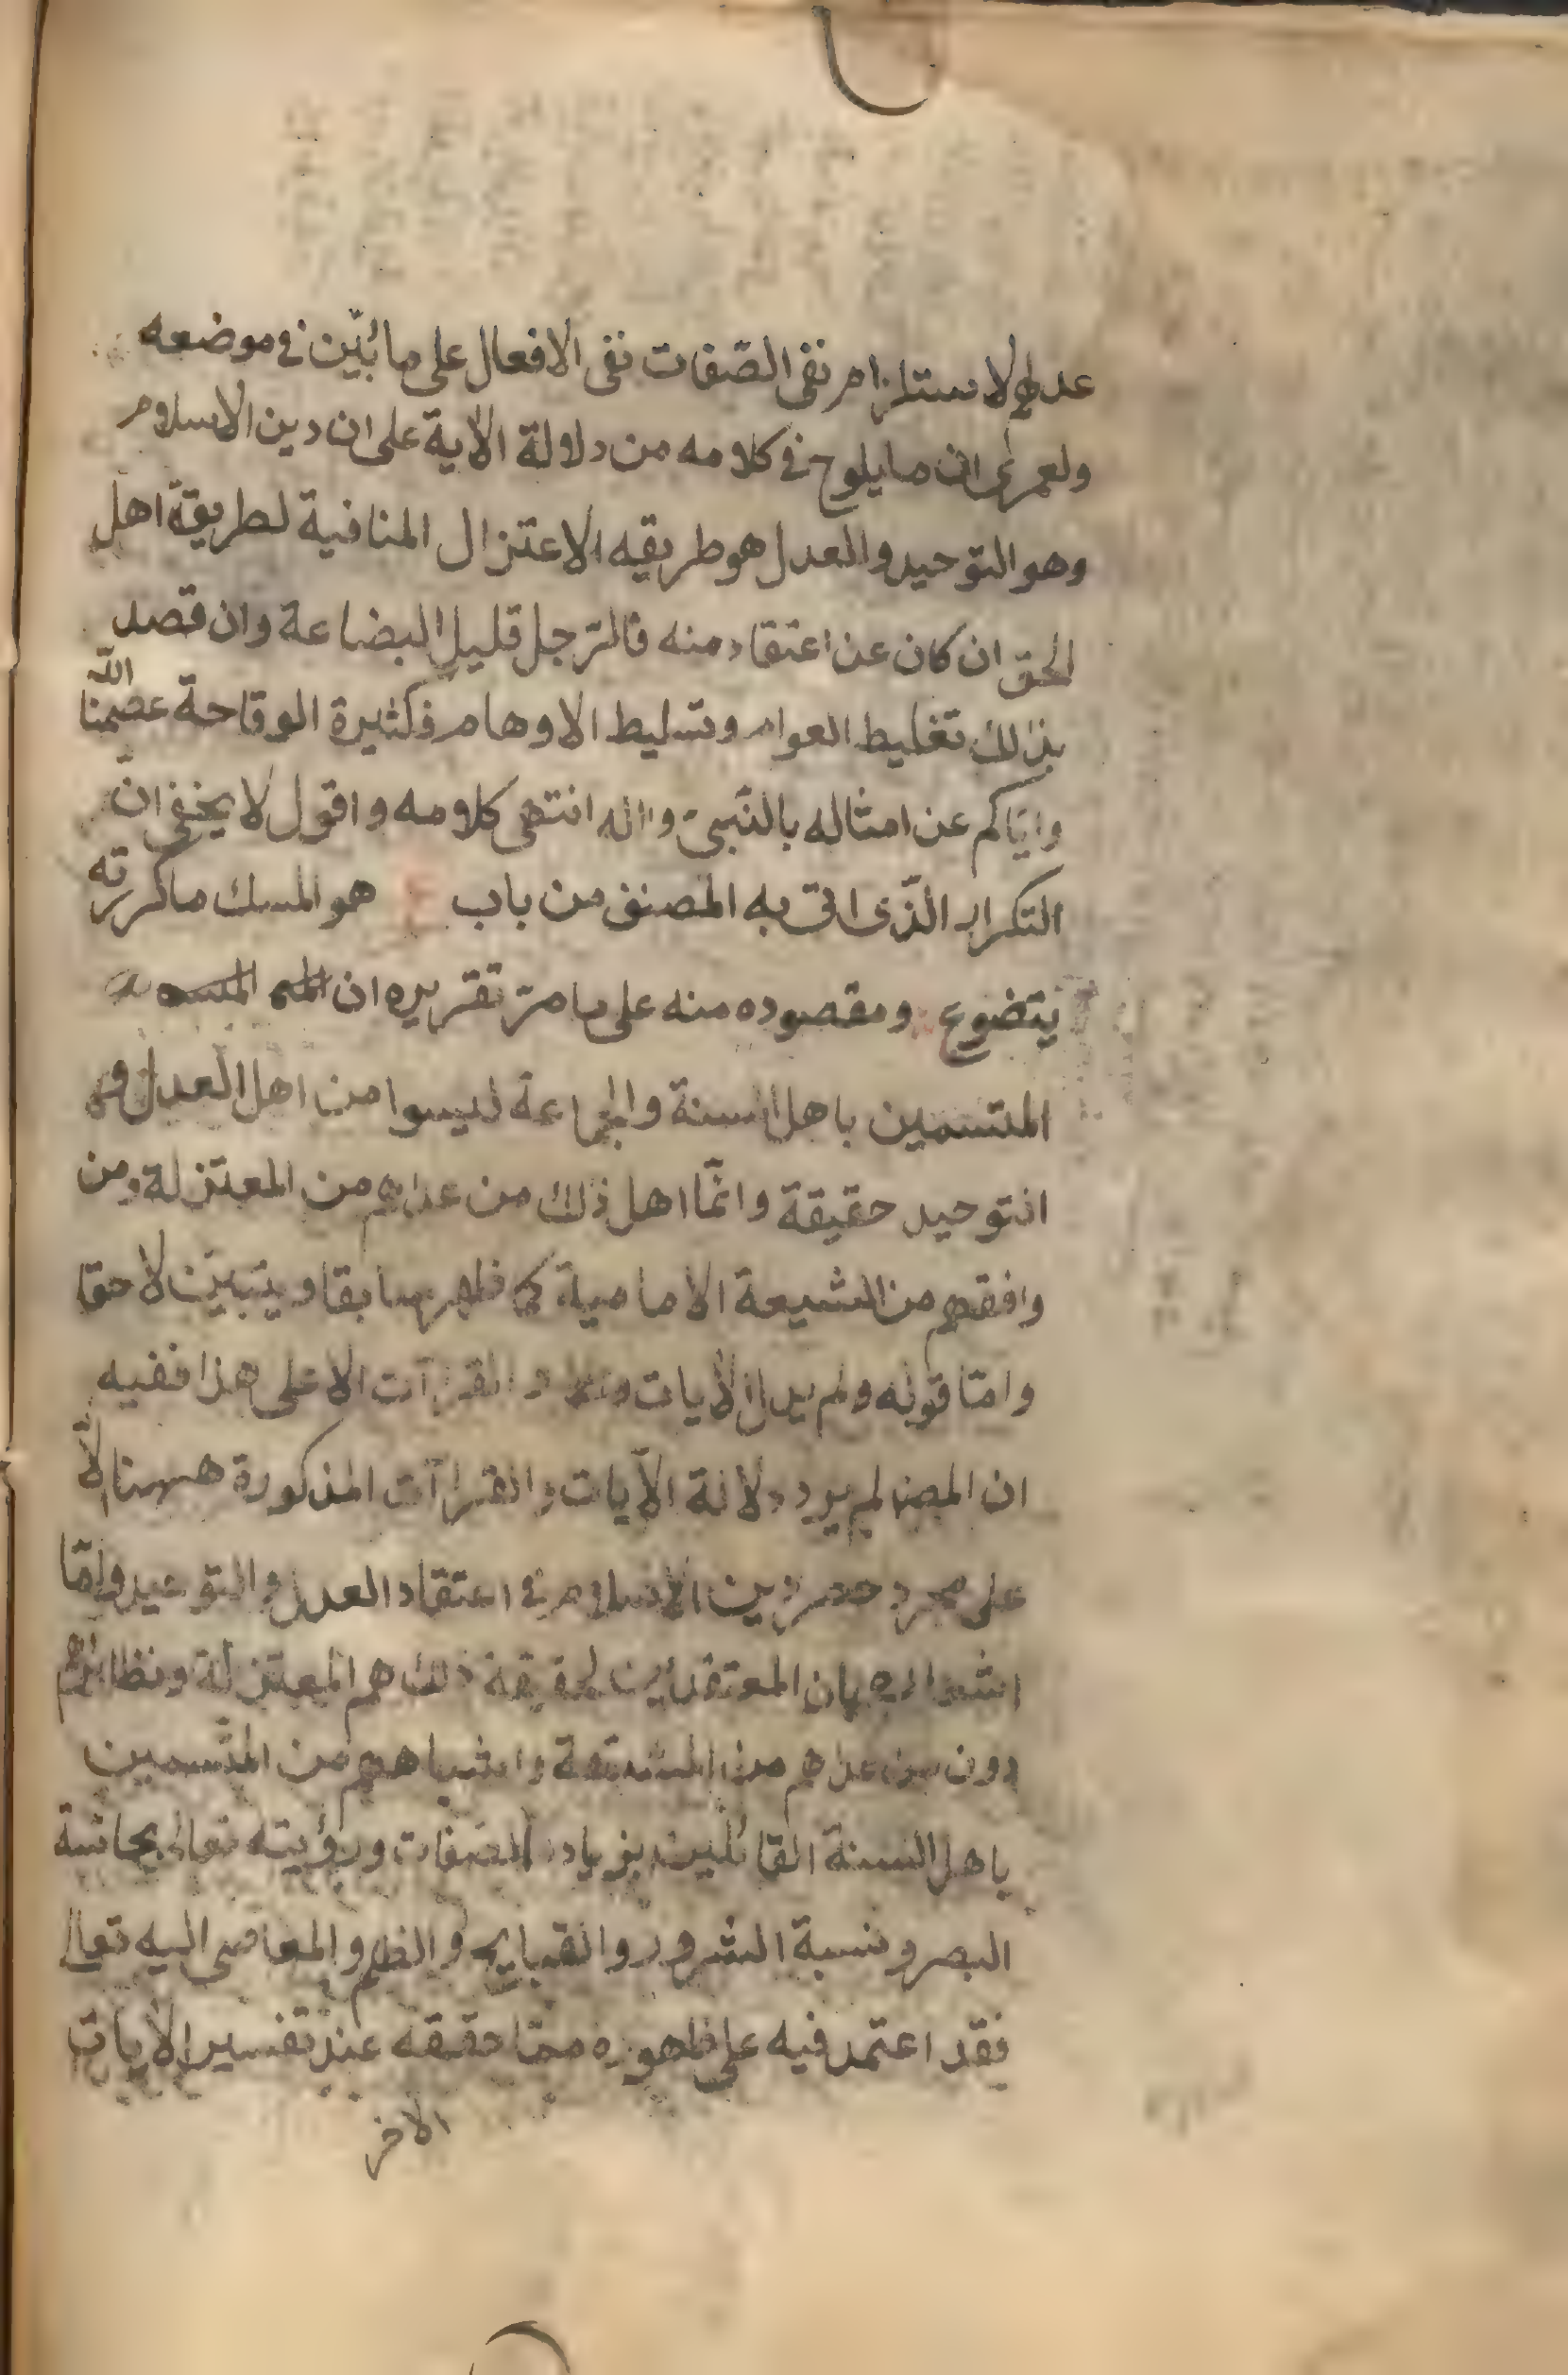 عدلهم لاستلزام نفى الصّفات نفى الافعال على ما بُيّن فى موضعه
ولعمرى ان ما يلوح فى كلامه من دلالة الاية على ان دين الاسلام
وهو التوحيد والعدل هو طريقه الاعتزال المنافية لطريقة اهل
الحق ان كان عن اعتقاد منه فالرّجل قليل البضاعة وان قصد
بذلك تغليط العوام وتسليط الاوهام فكثيرة الوقاحة عصمنا الله
وايّاكم عن امثاله بالنّبىّ واله انتهى كلامه واقول لا يخفى انّ
التكرار الّذى اتى به المصنف من باب هو المسك ما كررته
يتضوع ومقصوده منه على ما مرّ تقريره ان
المتسمين باهل السنة والجماعة ليسوا من اهل العدل و
التوحيد حقيقة وانّما اهل ذلك من عداهم من المعتزلة ومن
وافقهم من الشيعة الامامية كما ظهر سابقا ويتبيّن لاحقا
وامّا قوله ولم يدل الآيات و القرآت الا على هذا ففيه
ان المصنف لم يرد دلالة الآيات والقرآت المذكورة ههنا الّا
على مجرد حصر دين الاسلام فى اعتقاد العدل والتوحيد وامّا
اشعاره بان المعتقدين لحقيقة ذلك هم المعتزلة ونظائرهم
دون من عداهم من المشبّهة واشباههم من المتّسمين
باهل السنة القائلين بزيادة الصّفات ورؤيته تعالى بحاسّة
البصر ونسبة الشرور والقبايح والظلم والمعاصى اليه تعالى
فقد اعتمد فيه على ظهوره ممّا حقيقه عند تفسير الآيات
الاخر